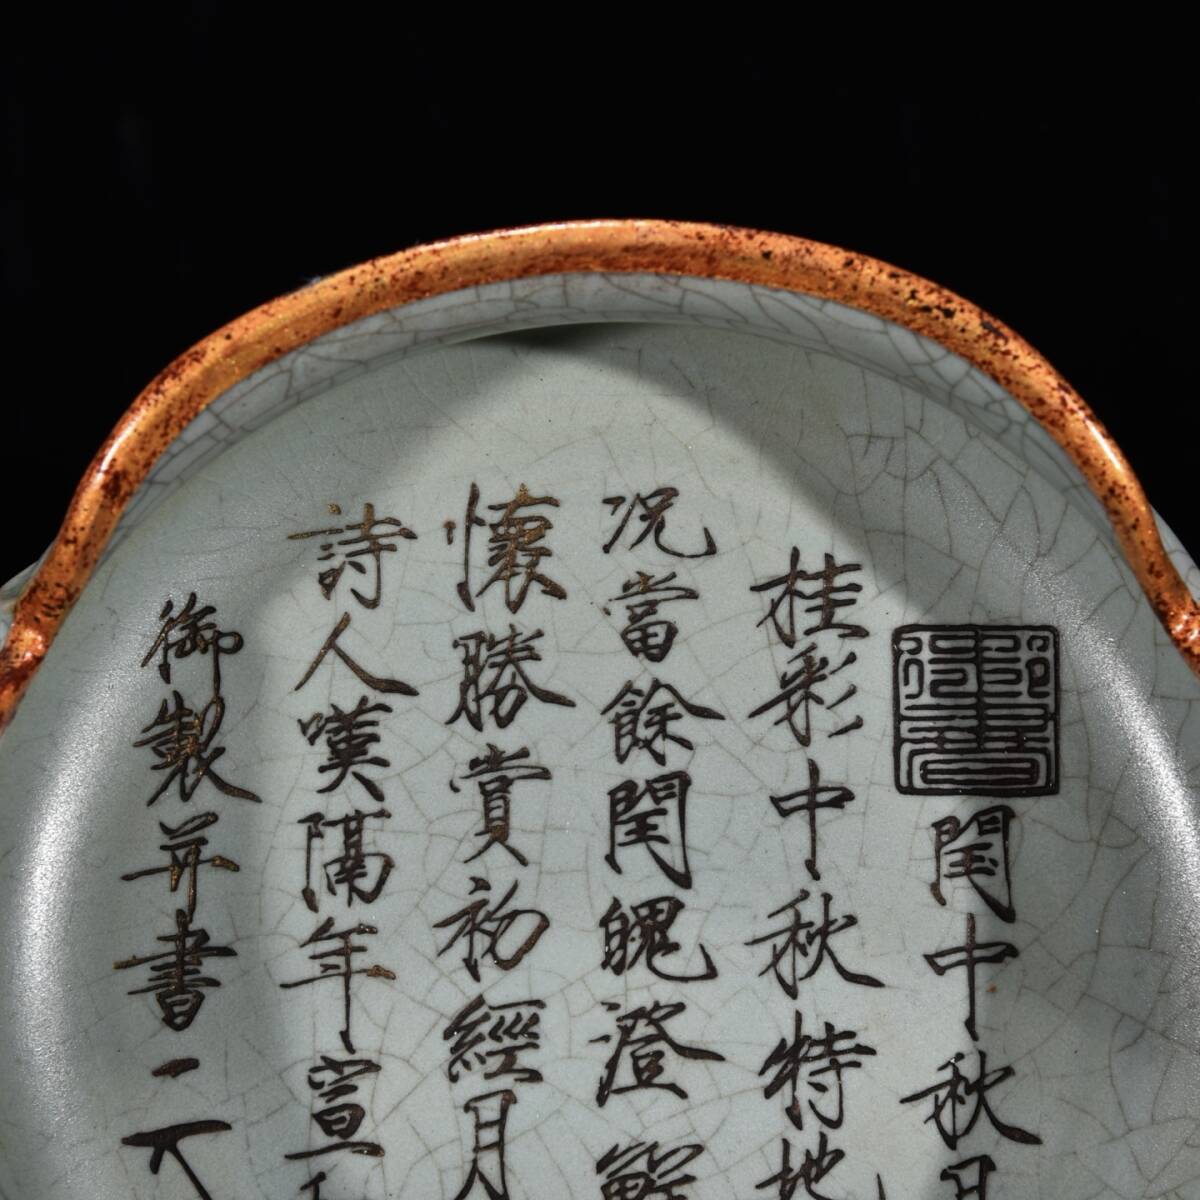 御書
閏中秋月
桂彩中秋特地
況當餘閏魄澄鮮
懷勝賞初經月
詩人嘆隔年宣
御製并書一